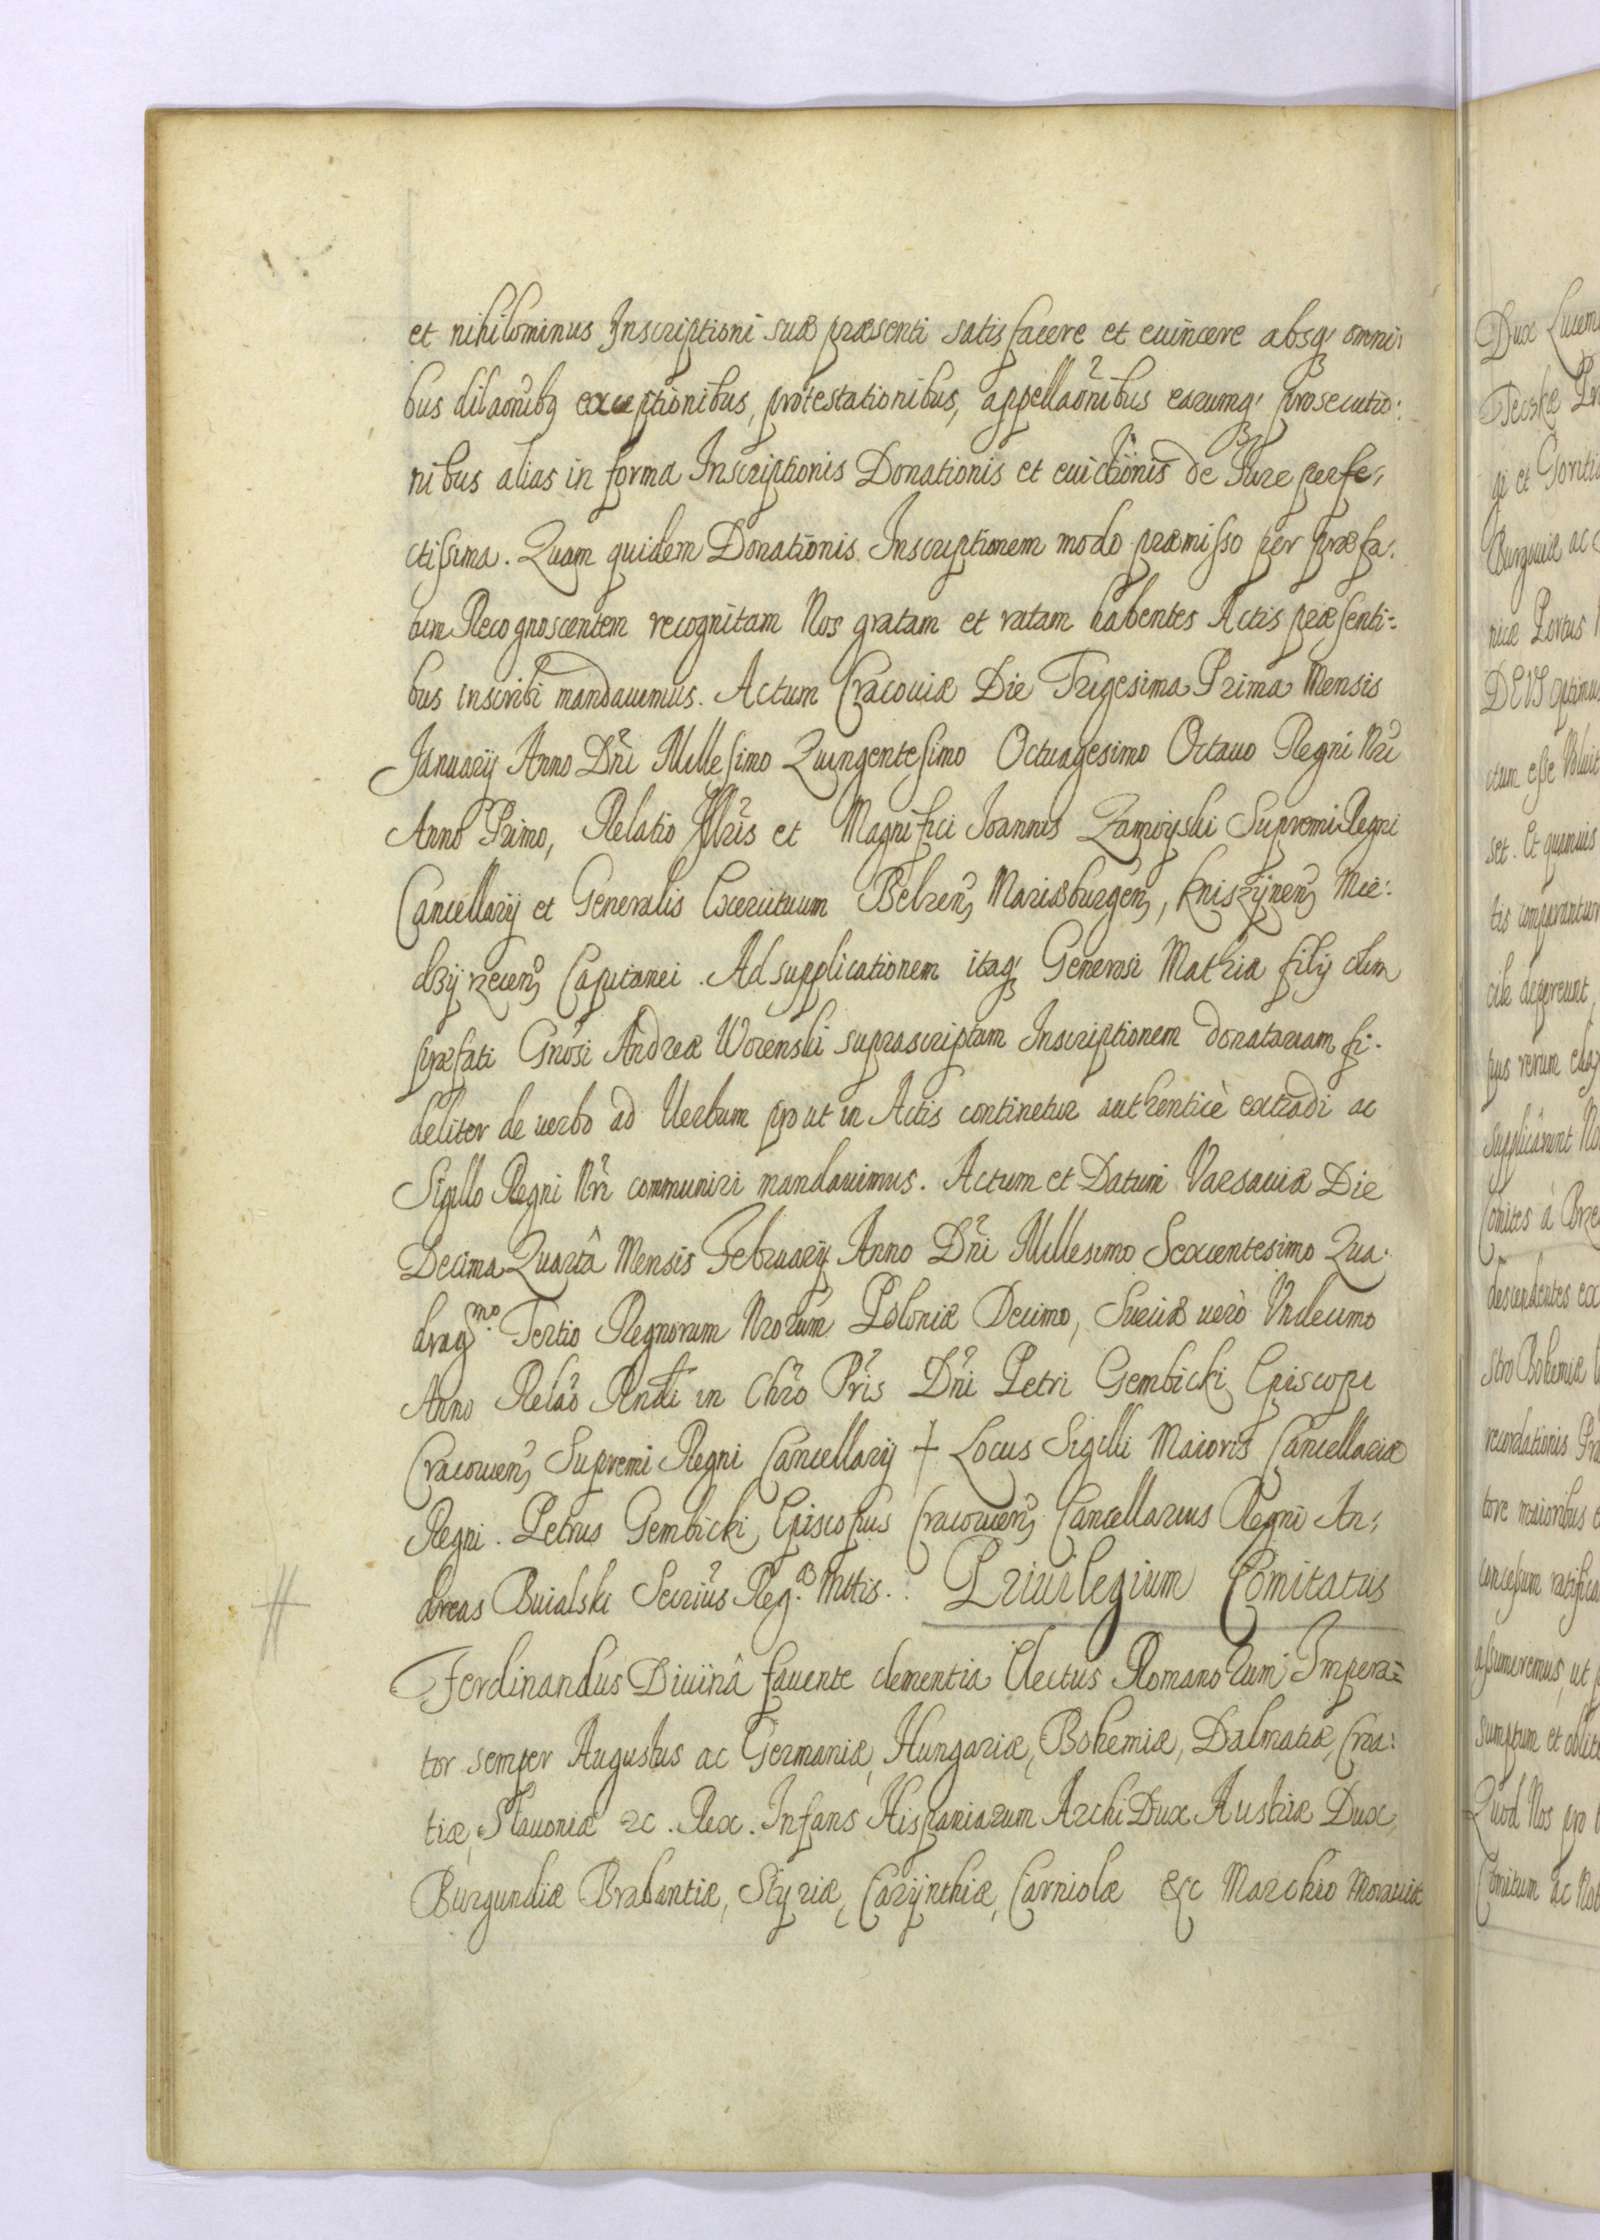 et nihilominus Inscriptioni suæ præsenti satisfacere et euincere absq́ omni:
bus dilaõnibq exceptionibus, protestationibus, appellaõnibus earumq́ prosecutio:
nibus alias in forma Inscriptionis Donationis et euictionis de Jure perfe:
ctissima. Quam quidem Donationis Inscriptionem modo præmisso per præfa:
tum Recognoscentem recognitam Nos gratam et ratam habentes Actis præsenti:
bus inscribi mandauemus. Actum Cracouiæ Die Trigesima Prima Mensis
January Anno Dñi Millesimo Quingentesimo Octuagesimo Octauo Regni Nri
Anno Primo, Relatio Illris et Magnifici Joannis Zamoyski Supremi Regni
Cancellarij et Generalis Exercituum Belzeñ, Mariæburgeñ, Kniszyneñ Mie:
dzyrzeceñ Capitanei. Ad supplicationem itaq́ Generosi Mathiæ filij olim
præfati Gnosi Andreæ Worenski suprascriptam Inscriptionem donatariam fi:
deliter de uerbo ad Uerbum prout in Actis continetur authenticè extradi ac
Sigillo Regni Nri communiri mandauimus. Actum et Datum Varsauiæ Die
Decima Quarta Mensis February Anno Dñi Millesimo Sexcentesimo Qua:
drag.mo Tertio Regnorum Nrorum Poloniæ Decimo, Sueciæ uerò Vndecimo
Anno Relaõ Rndi in Chro Pris Dñi Petri Gembicki Episcopi
Cracouieñ Supremi Regni Cancellarij + Locus Sigilli Maioris Cancellariæ
Regni. Petrus Gembicki Episcopus Cracouieñ Cancellarius Regni An:
dreas Buialski Secrius Reg.æ Mttis. Priuilegium Comitatus
Ferdinandus Diuinâ fauente clementia Electus Romanorum Impera=
tor semper Augustus ac Germaniæ, Hungariæ, Bohemiæ, Dalmatiæ, Croa:
tiæ, Slauoniæ &c. Rex. Infans Hispaniarum ArchiDux Austriæ Dux
Burgundiæ Brabantiæ, Styriæ, Carynthiæ, Carniolæ &c Marchio Morauiæ
Dux
Burgouiæ ac
DEUS optimus
tis comparantur
cile depereunt
supplicarunt
Comites à
descendentes ex
stro Bohemiæ
recordationis
tore maioribus
concessum
assumeremus, ut
sumptum et
Quod Nos pro
Comitum ac